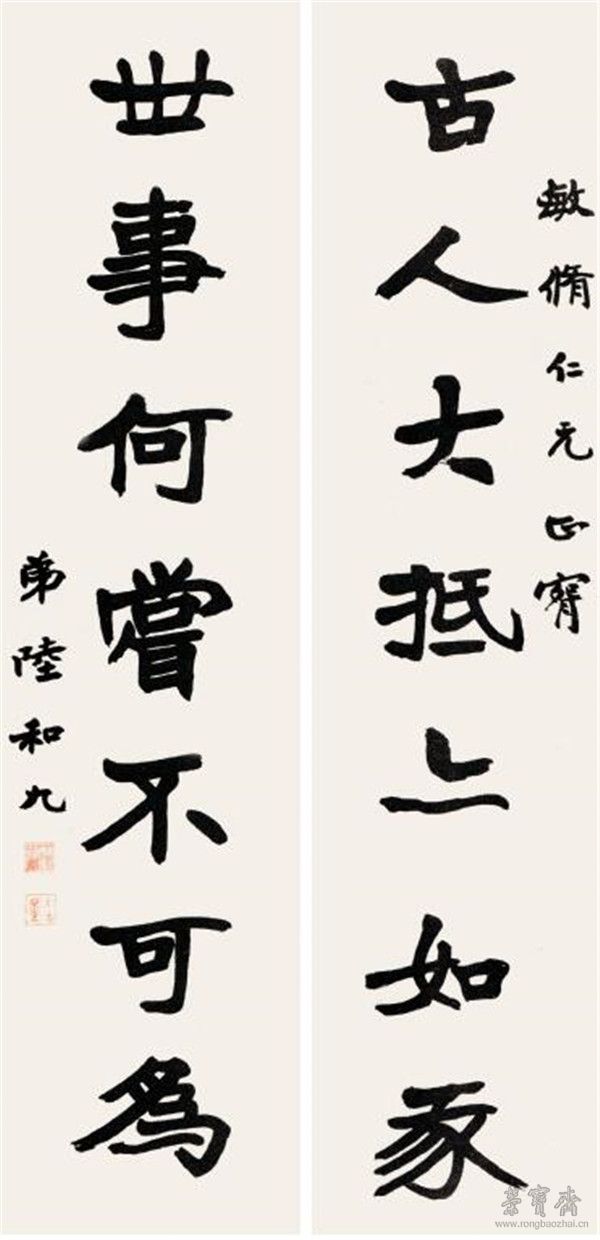 敏脩仁兄正
古人大抵亦如我
世事何嘗不可為
弟陸和九
榮寶齋
www.rongbaozhai.cn